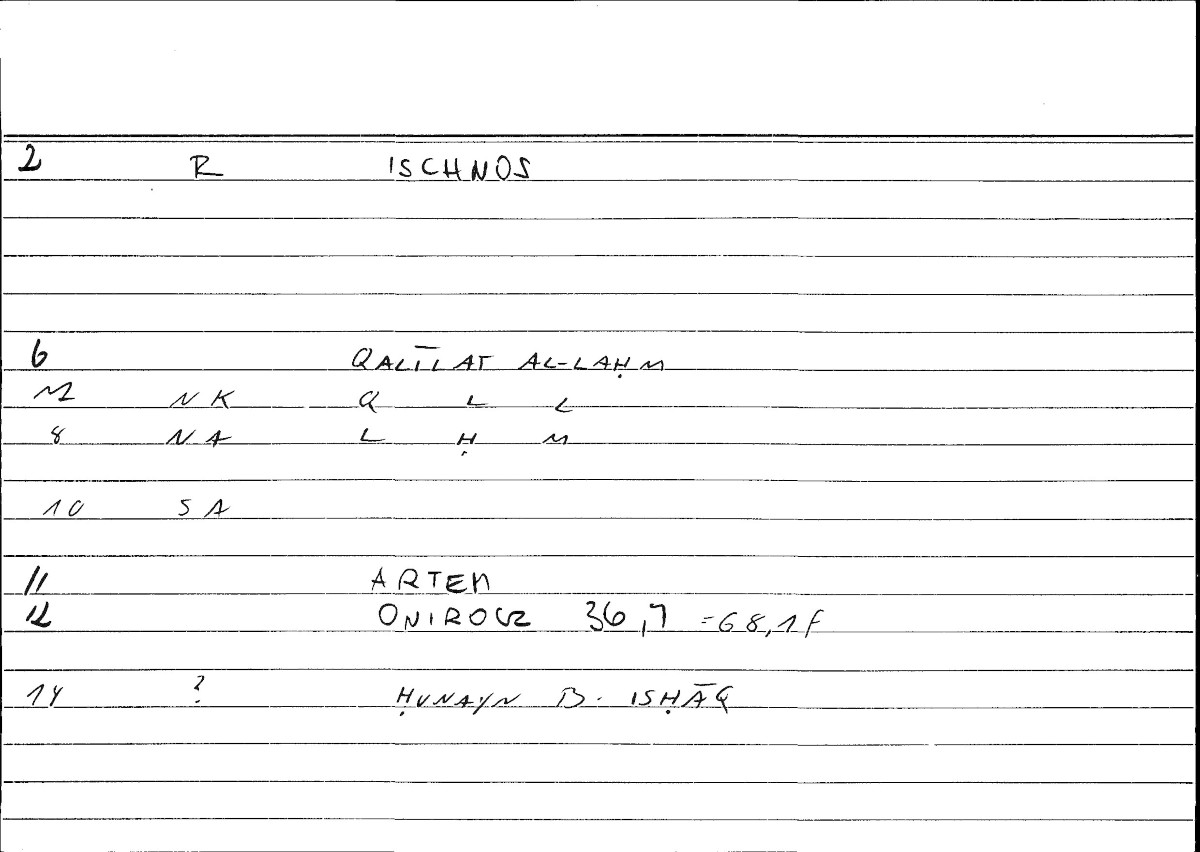 2 R ISCHNOS
6 QALĪLAT AL-LAḤM
NK Q L L
8 NA L Ḥ M
10 SA
11 ARTEM
12 ONIROCR 36,7 =68,1f
14 ? ḤUNAYN B. ISḤĀQ